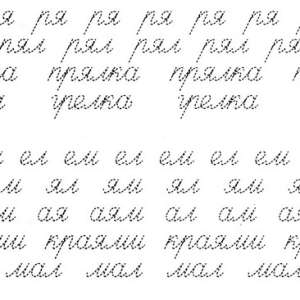 я ря ря ря ря ря
рял рял рял рял рял
а прялка прялка
а грелка грелка
ел ем ел ем ел ем
ям ял ям ял ям
ам ая аям ал ам ал
ми краями краями к
мал мал мал мал